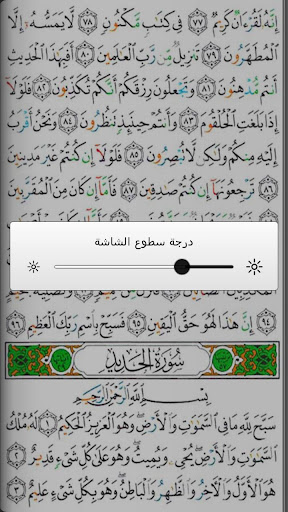 إِنَّهُ لَقُرْءَانٌ كَرِيمٌ ٧٧ فِي كِتَٰبٍ مَّكْنُونٍ ٧٨ لَّا يَمَسُّهُ إِلَّا
الْمُطَهَّرُونَ ٧٩ تَنزِيلٌ مِّن رَّبِّ الْعَٰلَمِينَ ٨٠ أَفَبِهَٰذَا الْحَدِيثِ
أَنتُم مُّدْهِنُونَ ٨١ وَتَجْعَلُونَ رِزْقَكُمْ أَنَّكُمْ تُكَذِّبُونَ ٨٢ فَلَوْلَا
إِذَا بَلَغَتِ الْحُلْقُومَ ٨٣ وَأَنتُمْ حِينَئِذٍ تَنظُرُونَ ٨٤ وَنَحْنُ أَقْرَبُ
إِلَيْهِ مِنكُمْ وَلَٰكِن لَّا تُبْصِرُونَ ٨٥ فَلَوْلَا إِن كُنتُمْ غَيْرَ مَدِينِينَ
٨٦ تَرْجِعُونَهَا إِن كُنتُمْ صَٰدِقِينَ ٨٧ فَأَمَّا إِن كَانَ مِنَ الْمُقَرَّبِينَ
درجة سطوع الشاشة
٩٤ إِنَّ هَٰذَا لَهُوَ حَقُّ الْيَقِينِ ٩٥ فَسَبِّحْ بِاسْمِ رَبِّكَ الْعَظِيمِ ٩٦
سُورَةُ الْحَدِيدِ
بِسْمِ اللَّهِ الرَّحْمَٰنِ الرَّحِيمِ
سَبَّحَ لِلَّهِ مَا فِي السَّمَٰوَٰتِ وَالْأَرْضِ وَهُوَ الْعَزِيزُ الْحَكِيمُ ١ لَهُ مُلْكُ
السَّمَٰوَٰتِ وَالْأَرْضِ يُحْيِي وَيُمِيتُ وَهُوَ عَلَىٰ كُلِّ شَيْءٍ قَدِيرٌ ٢
هُوَ الْأَوَّلُ وَالْآخِرُ وَالظَّٰهِرُ وَالْبَاطِنُ وَهُوَ بِكُلِّ شَيْءٍ عَلِيمٌ ٣